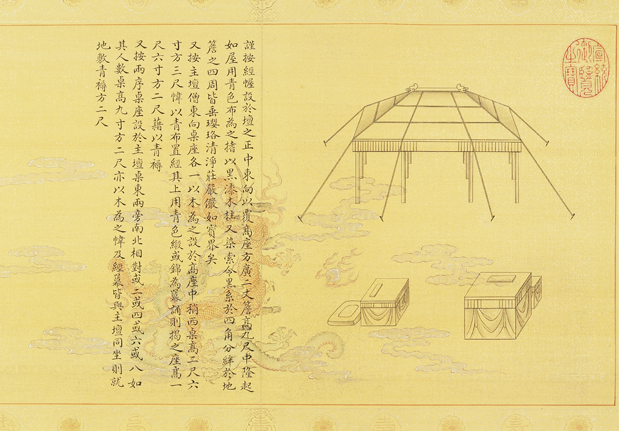 謹按經幄設於壇之正中東向以覆高座方廣二丈簷高九尺中隆起
如屋用青色布為之持以黑漆木柱又染索令黑系於四角分繂於地
簷之四周皆垂瓔珞清淨莊嚴儼如寶界矣
又按主壇僧東向桌座各一以木為之設於高座中稍西桌高二尺六
寸方三尺幃以青布置經其上用青色緞或錦為幕誦則揭之座高一
尺六寸方二尺藉以青褥
又按兩序桌座設於主壇桌東兩旁南北相對或二或四或六或八如
其人數桌高九寸方二尺亦以木為之幃及經幕皆與主壇同坐則就
地敷青褥方二尺